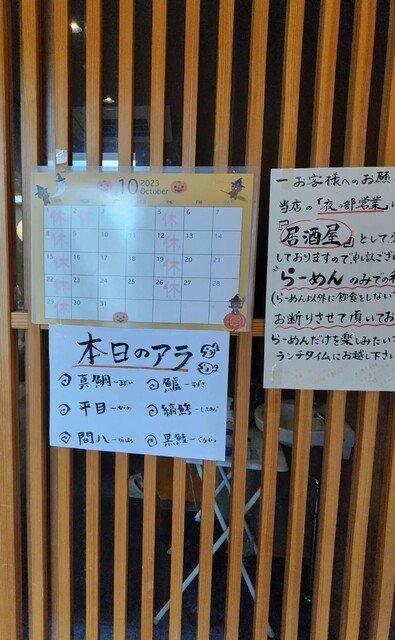 10 2023 October
1 休 2 3 4 5 休 6 7
8 休 9 10 11 12 休 13 14
15 休 16 17 18 19 休 20 21
22 休 23 24 25 26 休 27 28
29 休 30 31
本日のアラ
真鯛ーまだい
鱸ーすずき
平目ーひらめ
縞鯵ーしまあじ
間八ーかんぱち
ーくろむつ
ーお客様へのお願
当店の「夜の部営業」
『居酒屋』として
しておりますので申し訳ござい
"らーめんのみでの
(らーめん以外に飲食をしない
お断りさせて頂いてお
らーめんだけを楽しみたい
ランチタイムにお越し下さ